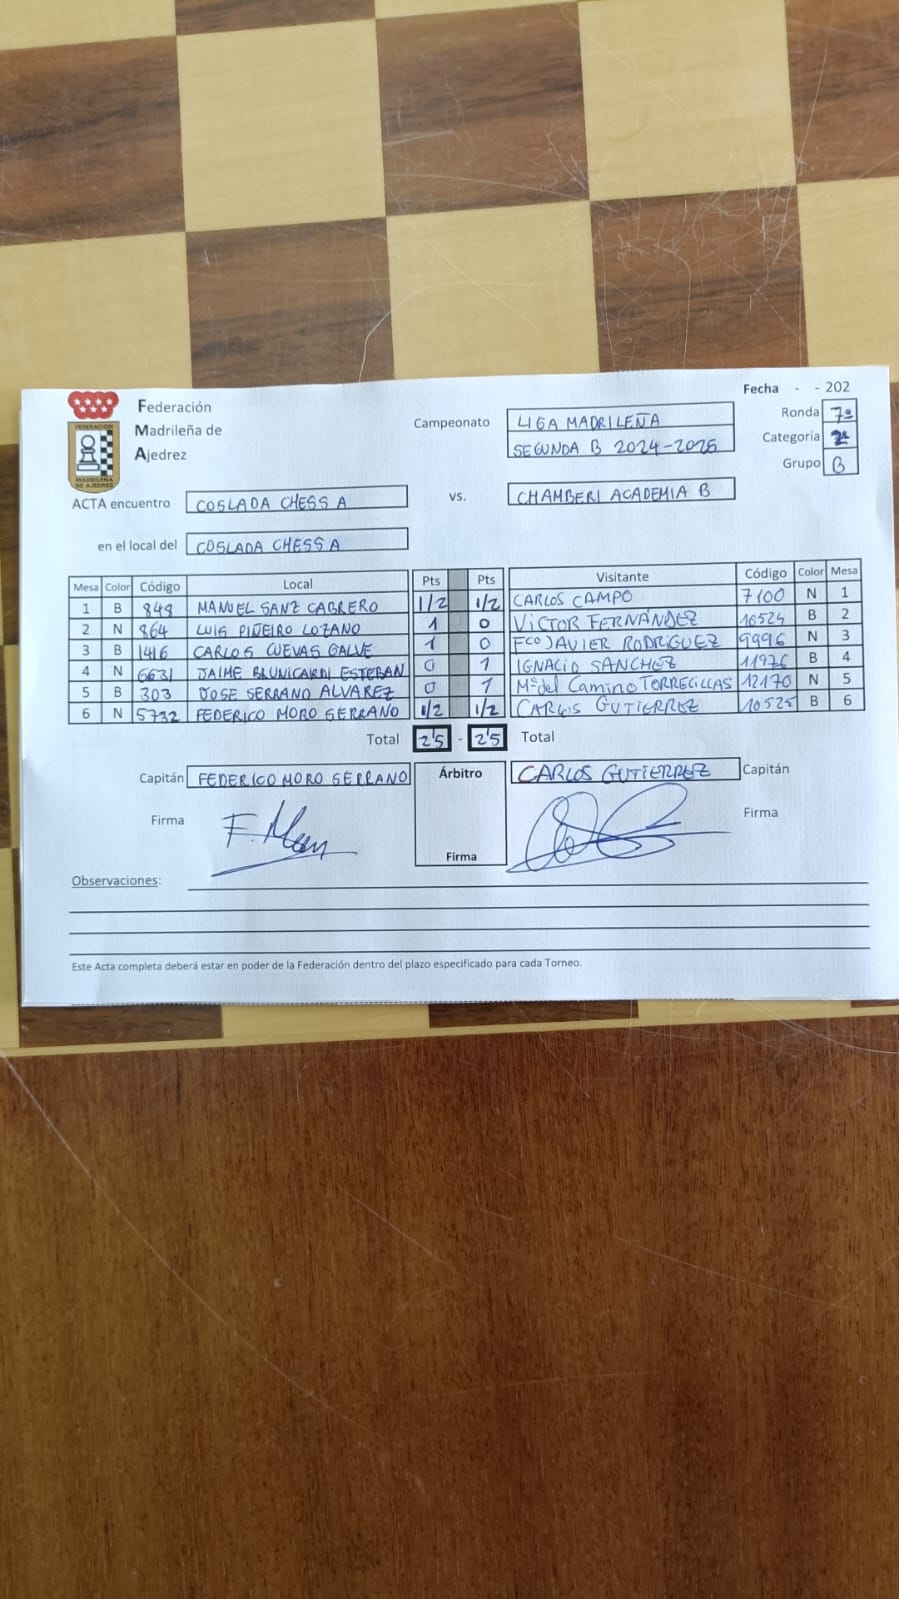 Fecha - - 202
Federación
Madrileña de
Ajedrez
FEDERACION
MADRILEÑA
DE AJEDREZ
Campeonato LIGA MADRILEÑA
SEGUNDA B 2024-2025
Ronda 7ª
Categoría 2ª
Grupo B
ACTA encuentro COSLADA CHESS A vs. CHAMBERI ACADEMIA B
en el local del COSLADA CHESS A
Mesa Color Código Local Pts Pts Visitante Código Color Mesa
1 B 848 MANUEL SANZ CAGRERO 1/2 1/2 CARLOS CAMPO 7100 N 1
2 N 864 LUIS PIÑEIRO LOZANO 1 0 VÍCTOR FERNÁNDEZ 16524 B 2
3 B 1416 CARLOS CUEVAS GALVE 1 0 Fco JAVIER RODRÍGUEZ 9996 N 3
4 N 6631 JAIME BRUNICARDI ESTEBAN 0 1 IGNACIO SÁNCHEZ 11976 B 4
5 B 303 JOSE SERRANO ALVAREZ 0 1 Mª del Camino TORRECILLAS 12170 N 5
6 N 5732 FEDERICO MORO SERRANO 1/2 1/2 CARLOS GUTIERREZ 10525 B 6
Total 2'5 - 2'5 Total
Capitán FEDERICO MORO SERRANO Árbitro CARLOS GUTIERREZ Capitán
Firma Firma
Firma
Observaciones:
Este Acta completa deberá estar en poder de la Federación dentro del plazo especificado para cada Torneo.